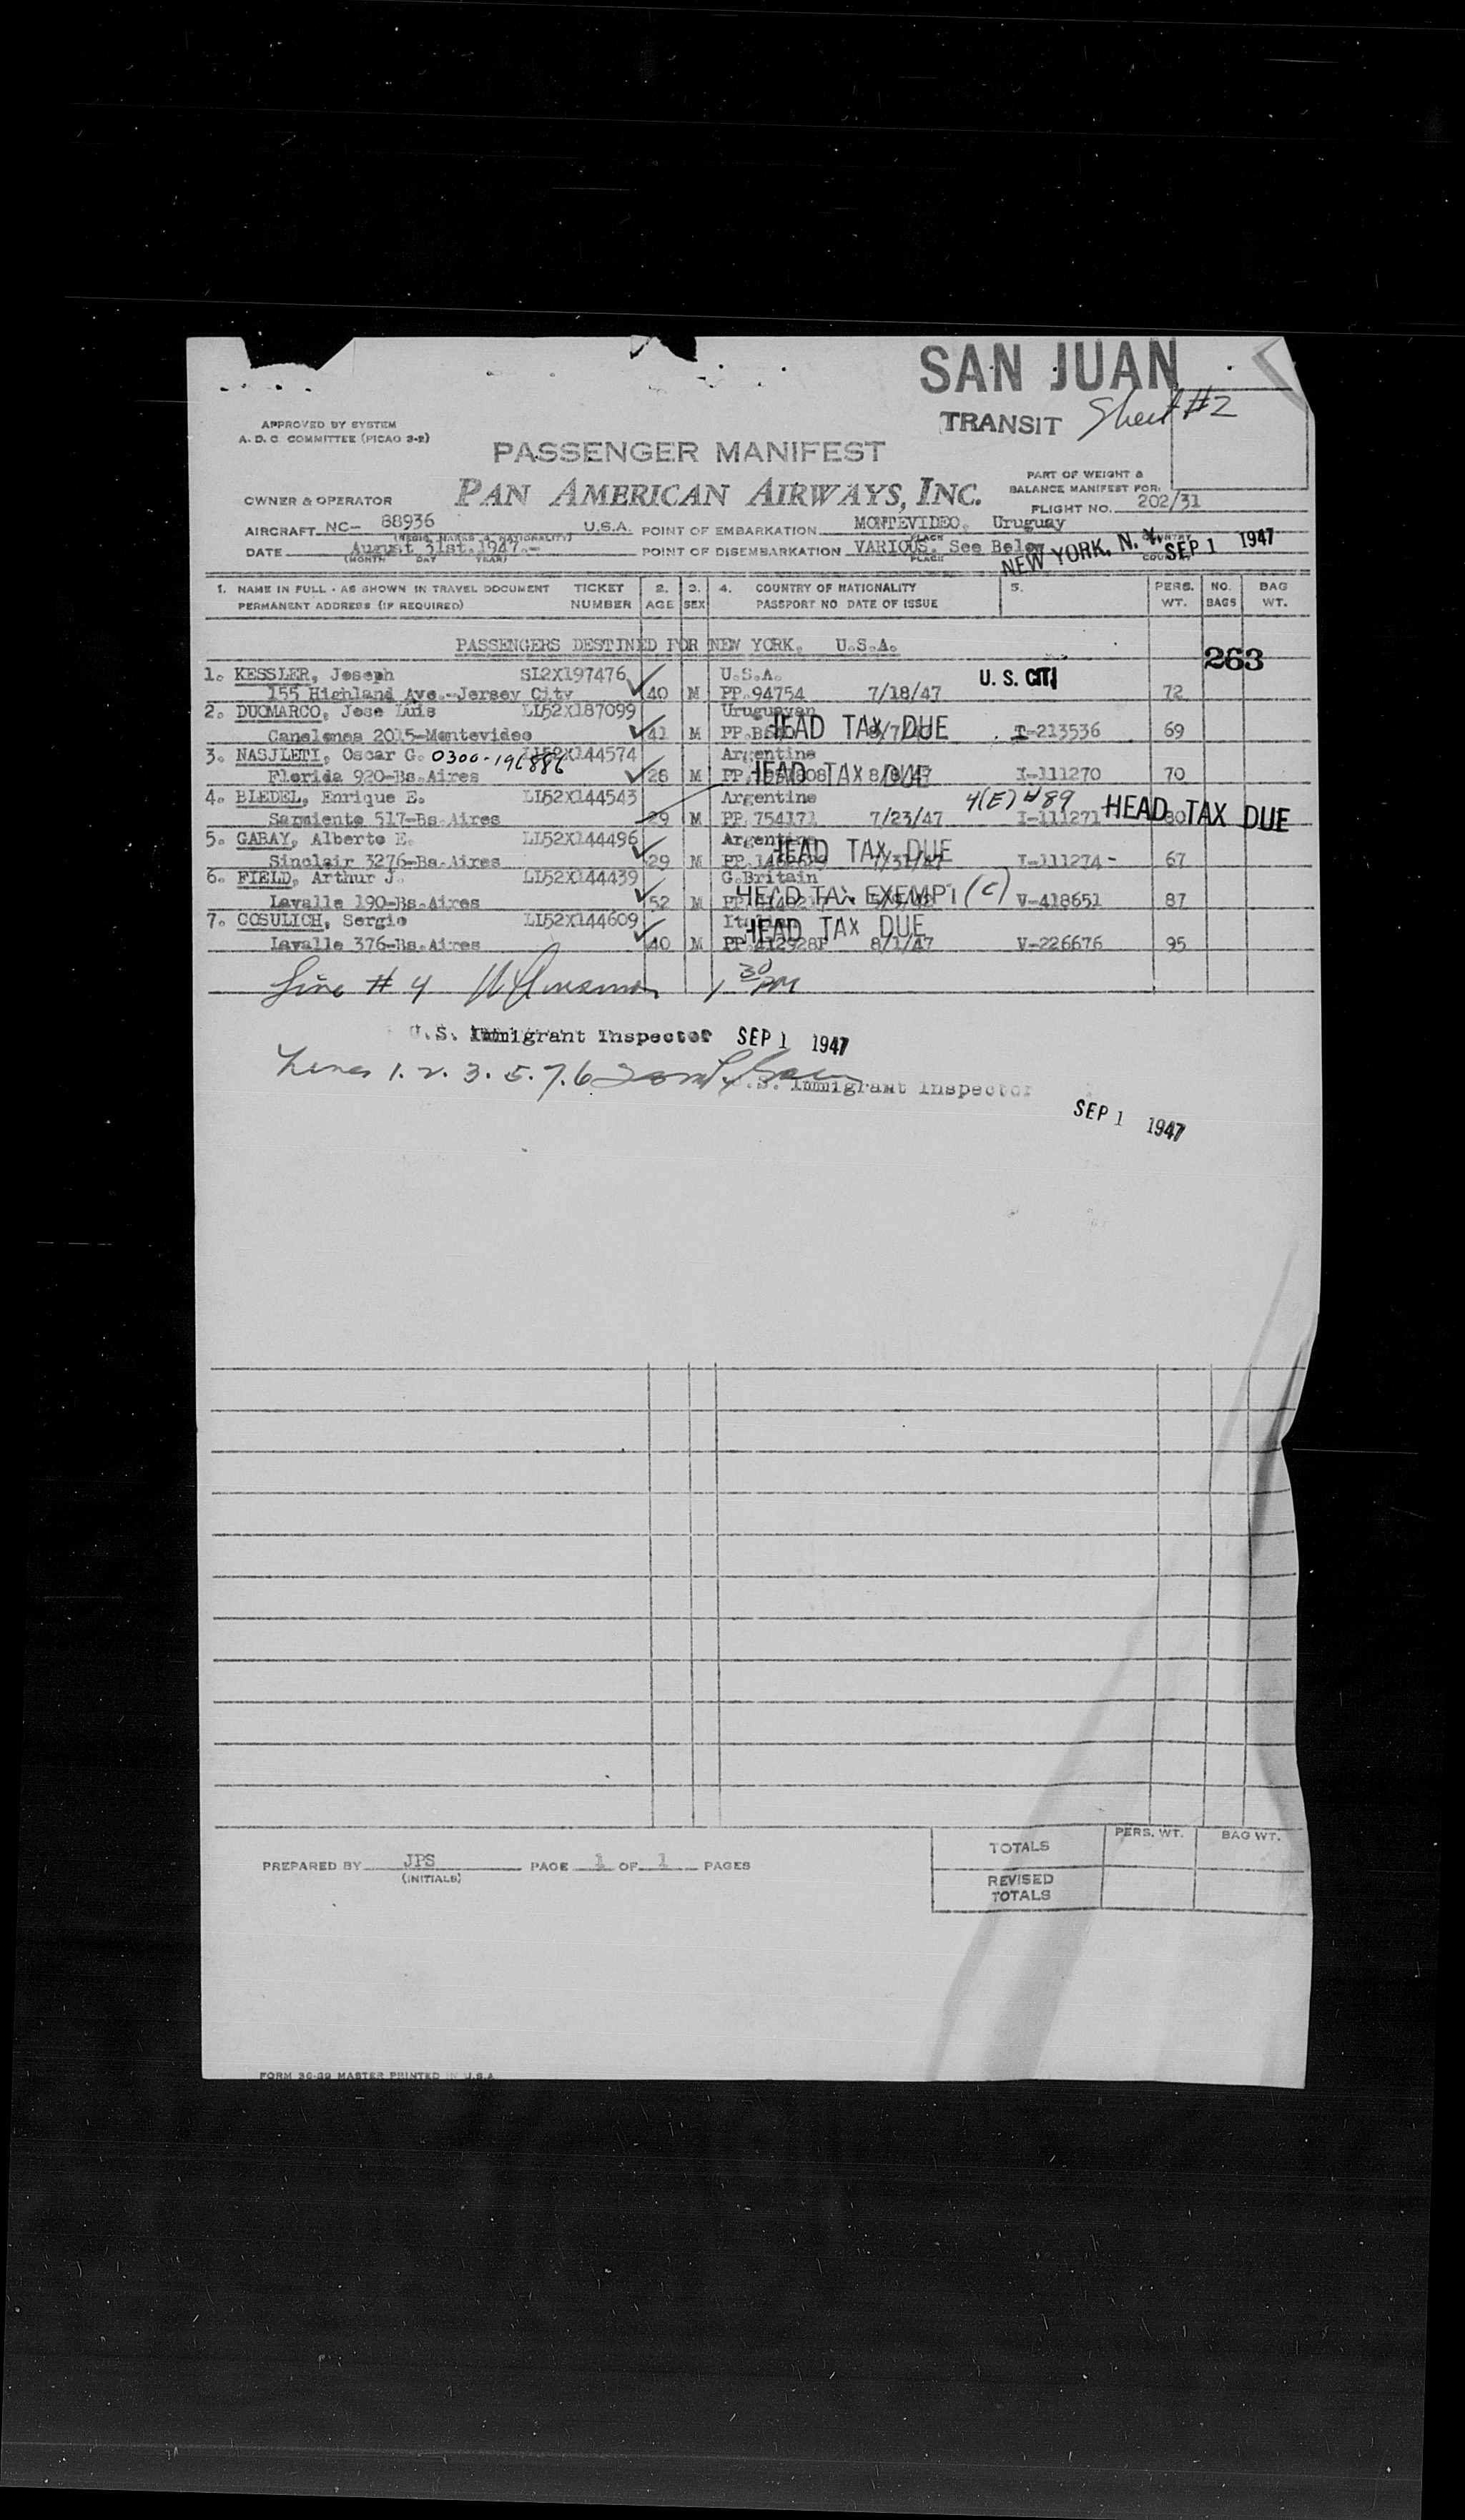 SAN JUAN
TRANSIT Sheet #2
APPROVED BY SYSTEM
A. D. C. COMMITTEE (PICAO 3-2)
PASSENGER MANIFEST
PART OF WEIGHT &
BALANCE MANIFEST FOR:
OWNER & OPERATOR PAN AMERICAN AIRWAYS, INC.
FLIGHT NO. 202/31
AIRCRAFT NC- 88936 U.S.A. POINT OF EMBARKATION MONTEVIDEO, Uruguay
DATE August 31st.1947.- POINT OF DISEMBARKATION VARIOUS. See Below
(MONTH DAY YEAR) PLACE
NEW YORK, N. Y. SEP 1 1947
1. NAME IN FULL - AS SHOWN IN TRAVEL DOCUMENT TICKET 2. 3. 4. COUNTRY OF NATIONALITY 5. PERS. NO. BAG
PERMANENT ADDRESS (IF REQUIRED) NUMBER AGE SEX PASSPORT NO DATE OF ISSUE WT. BAGS WT.
PASSENGERS DESTINED FOR NEW YORK, U.S.A.
263
1. KESSLER, Joseph SI2X197476 U.S.A. U. S. CITI
155 Highland Ave.-Jersey City 40 M PP.94754 7/18/47 72
2. DUOMARCO, Jose Luis LI52X187099 Uruguayan
HEAD TAX DUE
Canelones 2015-Montevideo 41 M T-213536 69
3. NASJLETI, Oscar G. 0300-196886 LI52X144574 Argentine
HEAD TAX DUE
Florida 920-Bs.Aires 28 M I-111270 70
4. BLEDEL, Enrique E. LI52X144543 Argentine 4(E)#89 HEAD TAX DUE
Sarmiento 517-Bs.Aires 29 M PP.754171 7/23/47 I-111271 80
5. GABAY, Alberto E. LI52X144496 Argentine
HEAD TAX DUE
Sinclair 3276-Bs.Aires 29 M I-111274- 67
6. FIELD, Arthur J. LI52X144439 G.Britain
HEAD TAX EXEMPT (C)
Lavalle 190-Bs.Aires 52 M V-418651 87
7. COSULICH, Sergio LI52X144609
HEAD TAX DUE
Lavalle 376-Bs.Aires 40 M PP.412928P 8/1/47 V-226676 95
Line # 4 1 30 PM
U.S. Immigrant Inspector SEP 1 1947
Lines 1. 2. 3. 5. 7. 6
U.S. Immigrant Inspector
SEP 1 1947
TOTALS PERS. WT. BAG WT.
PREPARED BY JPS PAGE 1 OF 1 PAGES
(INITIALS)
REVISED
TOTALS
FORM 36-39 MASTER PRINTED IN U.S.A.